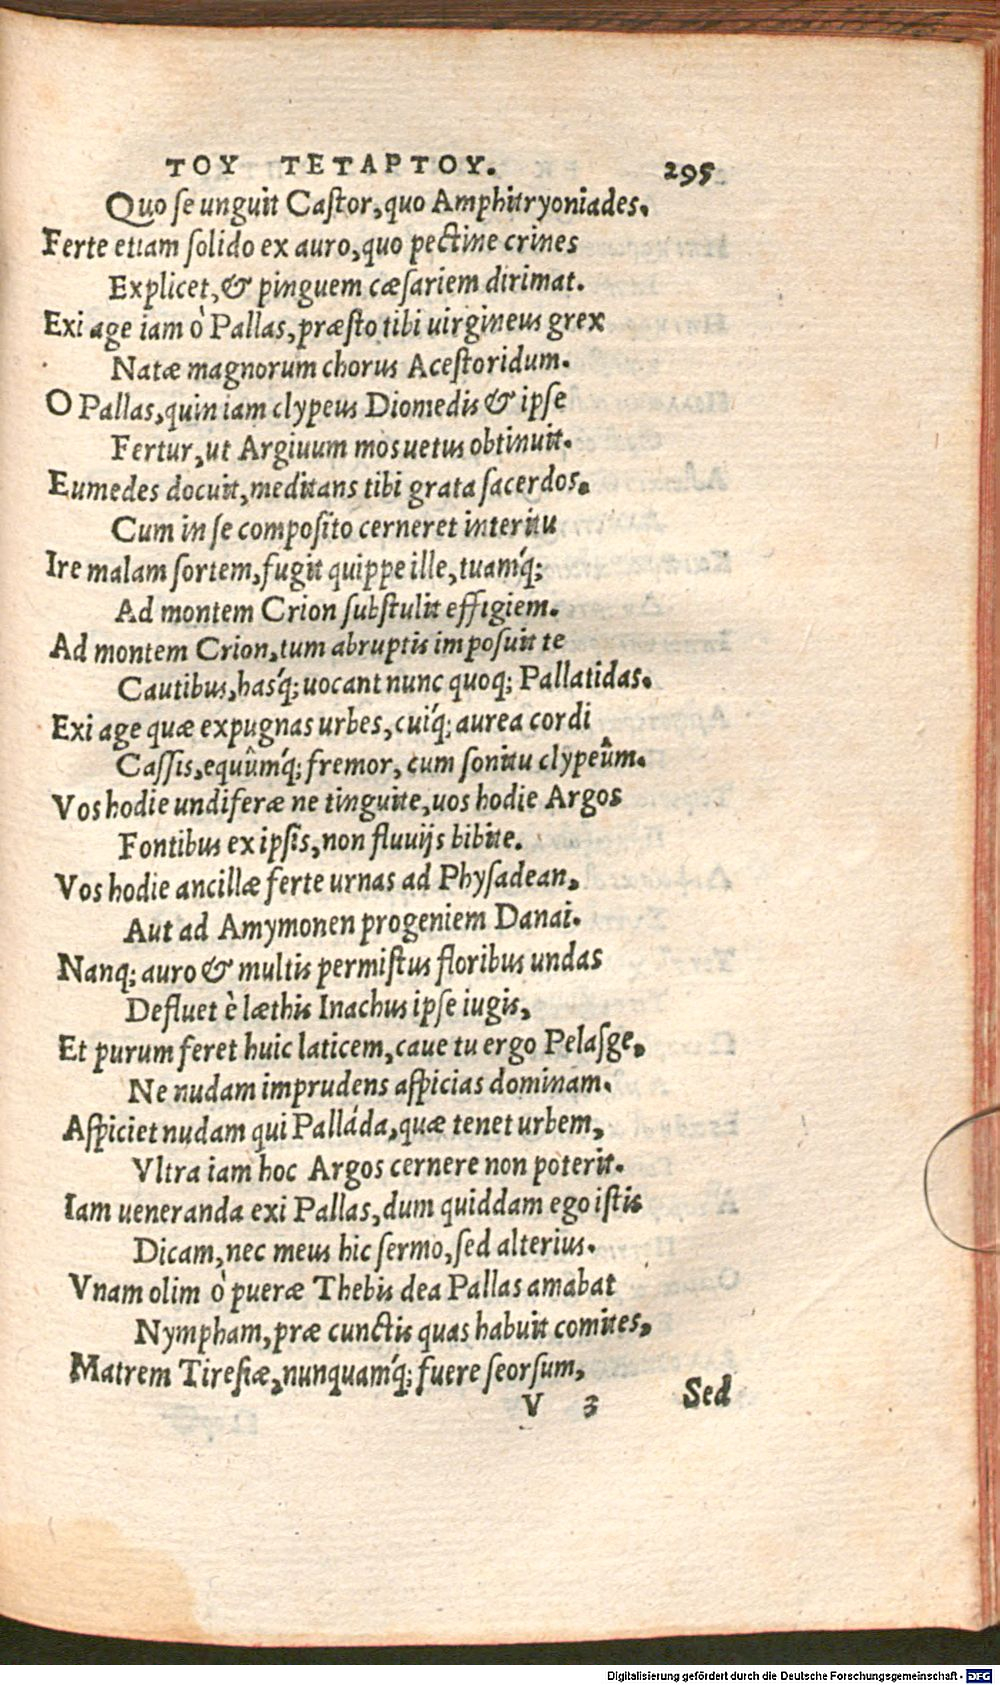 ΤΟΥ ΤΕΤΑΡΤΟΥ. 295
Quo se unguit Castor, quo Amphitryoniades.
Ferte etiam solido ex auro, quo pectine crines
Explicet, & pinguem cæsariem dirimat.
Exi age iam ò Pallas, præsto tibi uirgineus grex
Natæ magnorum chorus Acestoridum.
O Pallas, quin iam clypeus Diomedis & ipse
Fertur, ut Argiuum mos uetus obtinuit.
Eumedes docuit, meditans tibi grata sacerdos.
Cum in se composito cerneret interitu
Ire malam sortem, fugit quippe ille, tuamq́;
Ad montem Crion substulit effigiem.
Ad montem Crion, tum abruptis imposuit te
Cautibus, hasq́; uocant nunc quoq; Pallatidas.
Exi age quæ expugnas urbes, cuiq́; aurea cordi
Cassis, equûmq́; fremor, cum sonitu clypeûm.
Vos hodie undiferæ ne tinguite, uos hodie Argos
Fontibus ex ipsis, non fluuijs bibite.
Vos hodie ancillæ ferte urnas ad Physadean,
Aut ad Amymonen progeniem Danai.
Nanq; auro & multis permistus floribus undas
Defluet è læthis Inachus ipse iugis,
Et purum feret huic laticem, caue tu ergo Pelasge,
Ne nudam imprudens aspicias dominam.
Aspiciet nudam qui Palláda, quæ tenet urbem,
Vltra iam hoc Argos cernere non poterit.
Iam ueneranda exi Pallas, dum quiddam ego istis
Dicam, nec meus hic sermo, sed alterius.
Vnam olim ò pueræ Thebis dea Pallas amabat
Nympham, præ cunctis quas habuit comites,
Matrem Tiresiæ, nunquamq́; fuere seorsum,
V 3 Sed
Digitalisierung gefördert durch die Deutsche Forschungsgemeinschaft - DFG